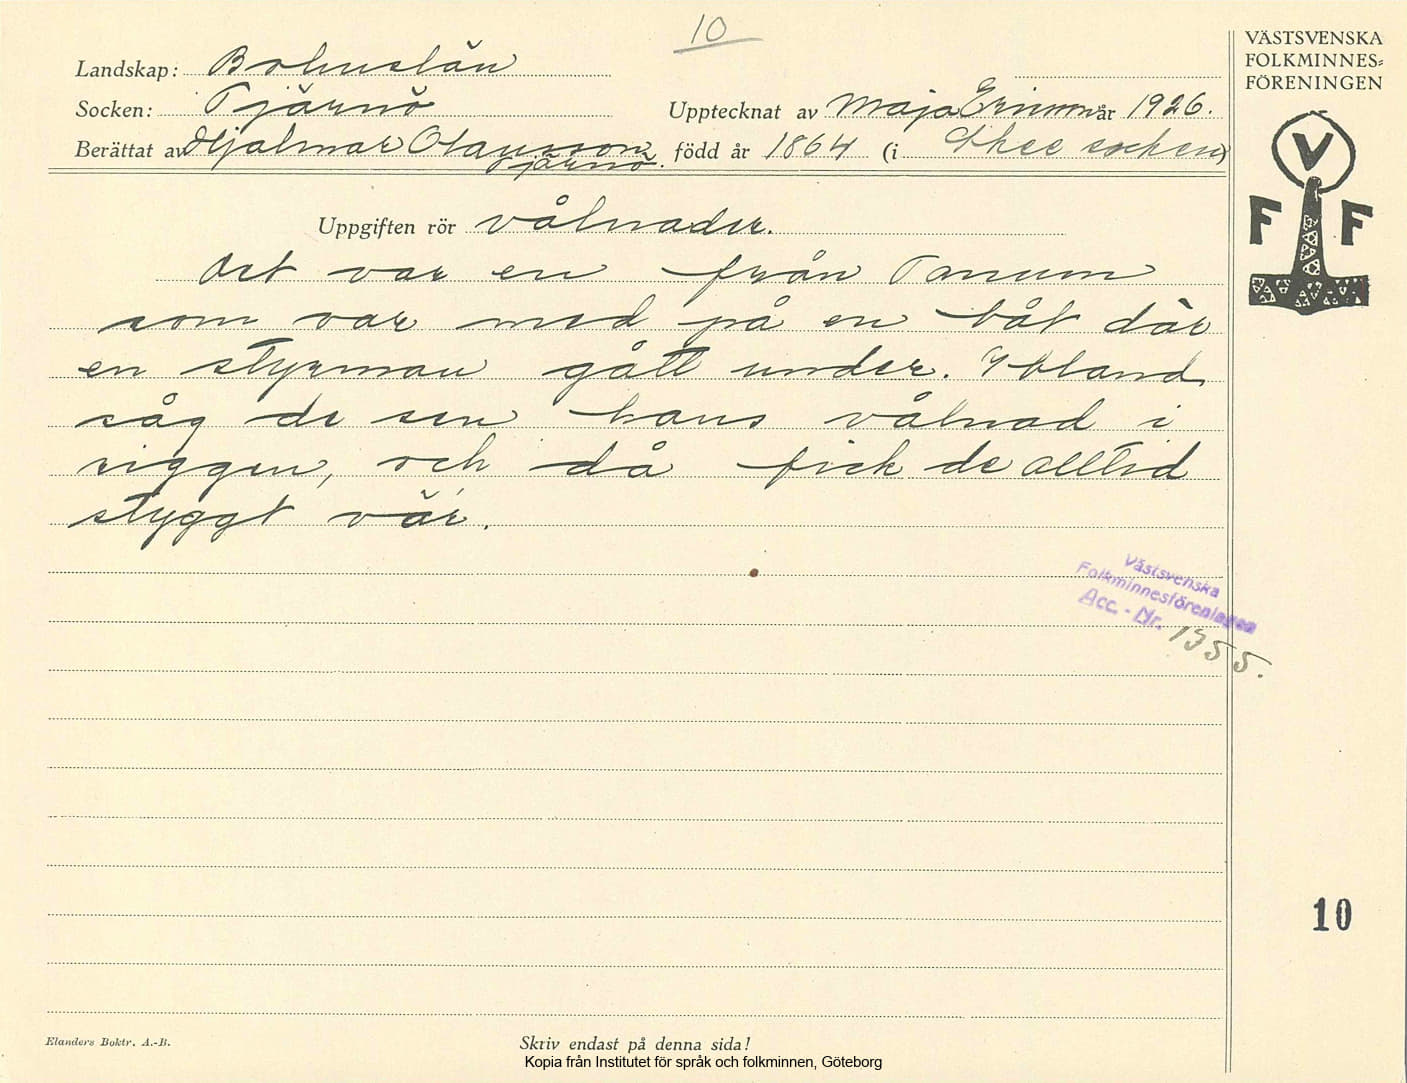 10
Landskap: Bohuslän
Socken: Tjärnö
Upptecknat av Maja Ericson år 1926.
Berättat av Hjalmar Olausson, Tjärnö. född år 1864 (i Skee socken)
Uppgiften rör vålnader.
Det var en från Tanum
som var med på en båt där
en styrman gått under. Ibland
såg de sen hans vålnad i
riggen, och då fick de alltid
styggt vär.
VÄSTSVENSKA
FOLKMINNES=
FÖRENINGEN
V
F F
Västsvenska
Folkminnesföreningen
Acc. - Nr. 1355.
10
Elanders Boktr. A.-B.
Skriv endast på denna sida!
Kopia från Institutet för språk och folkminnen, Göteborg